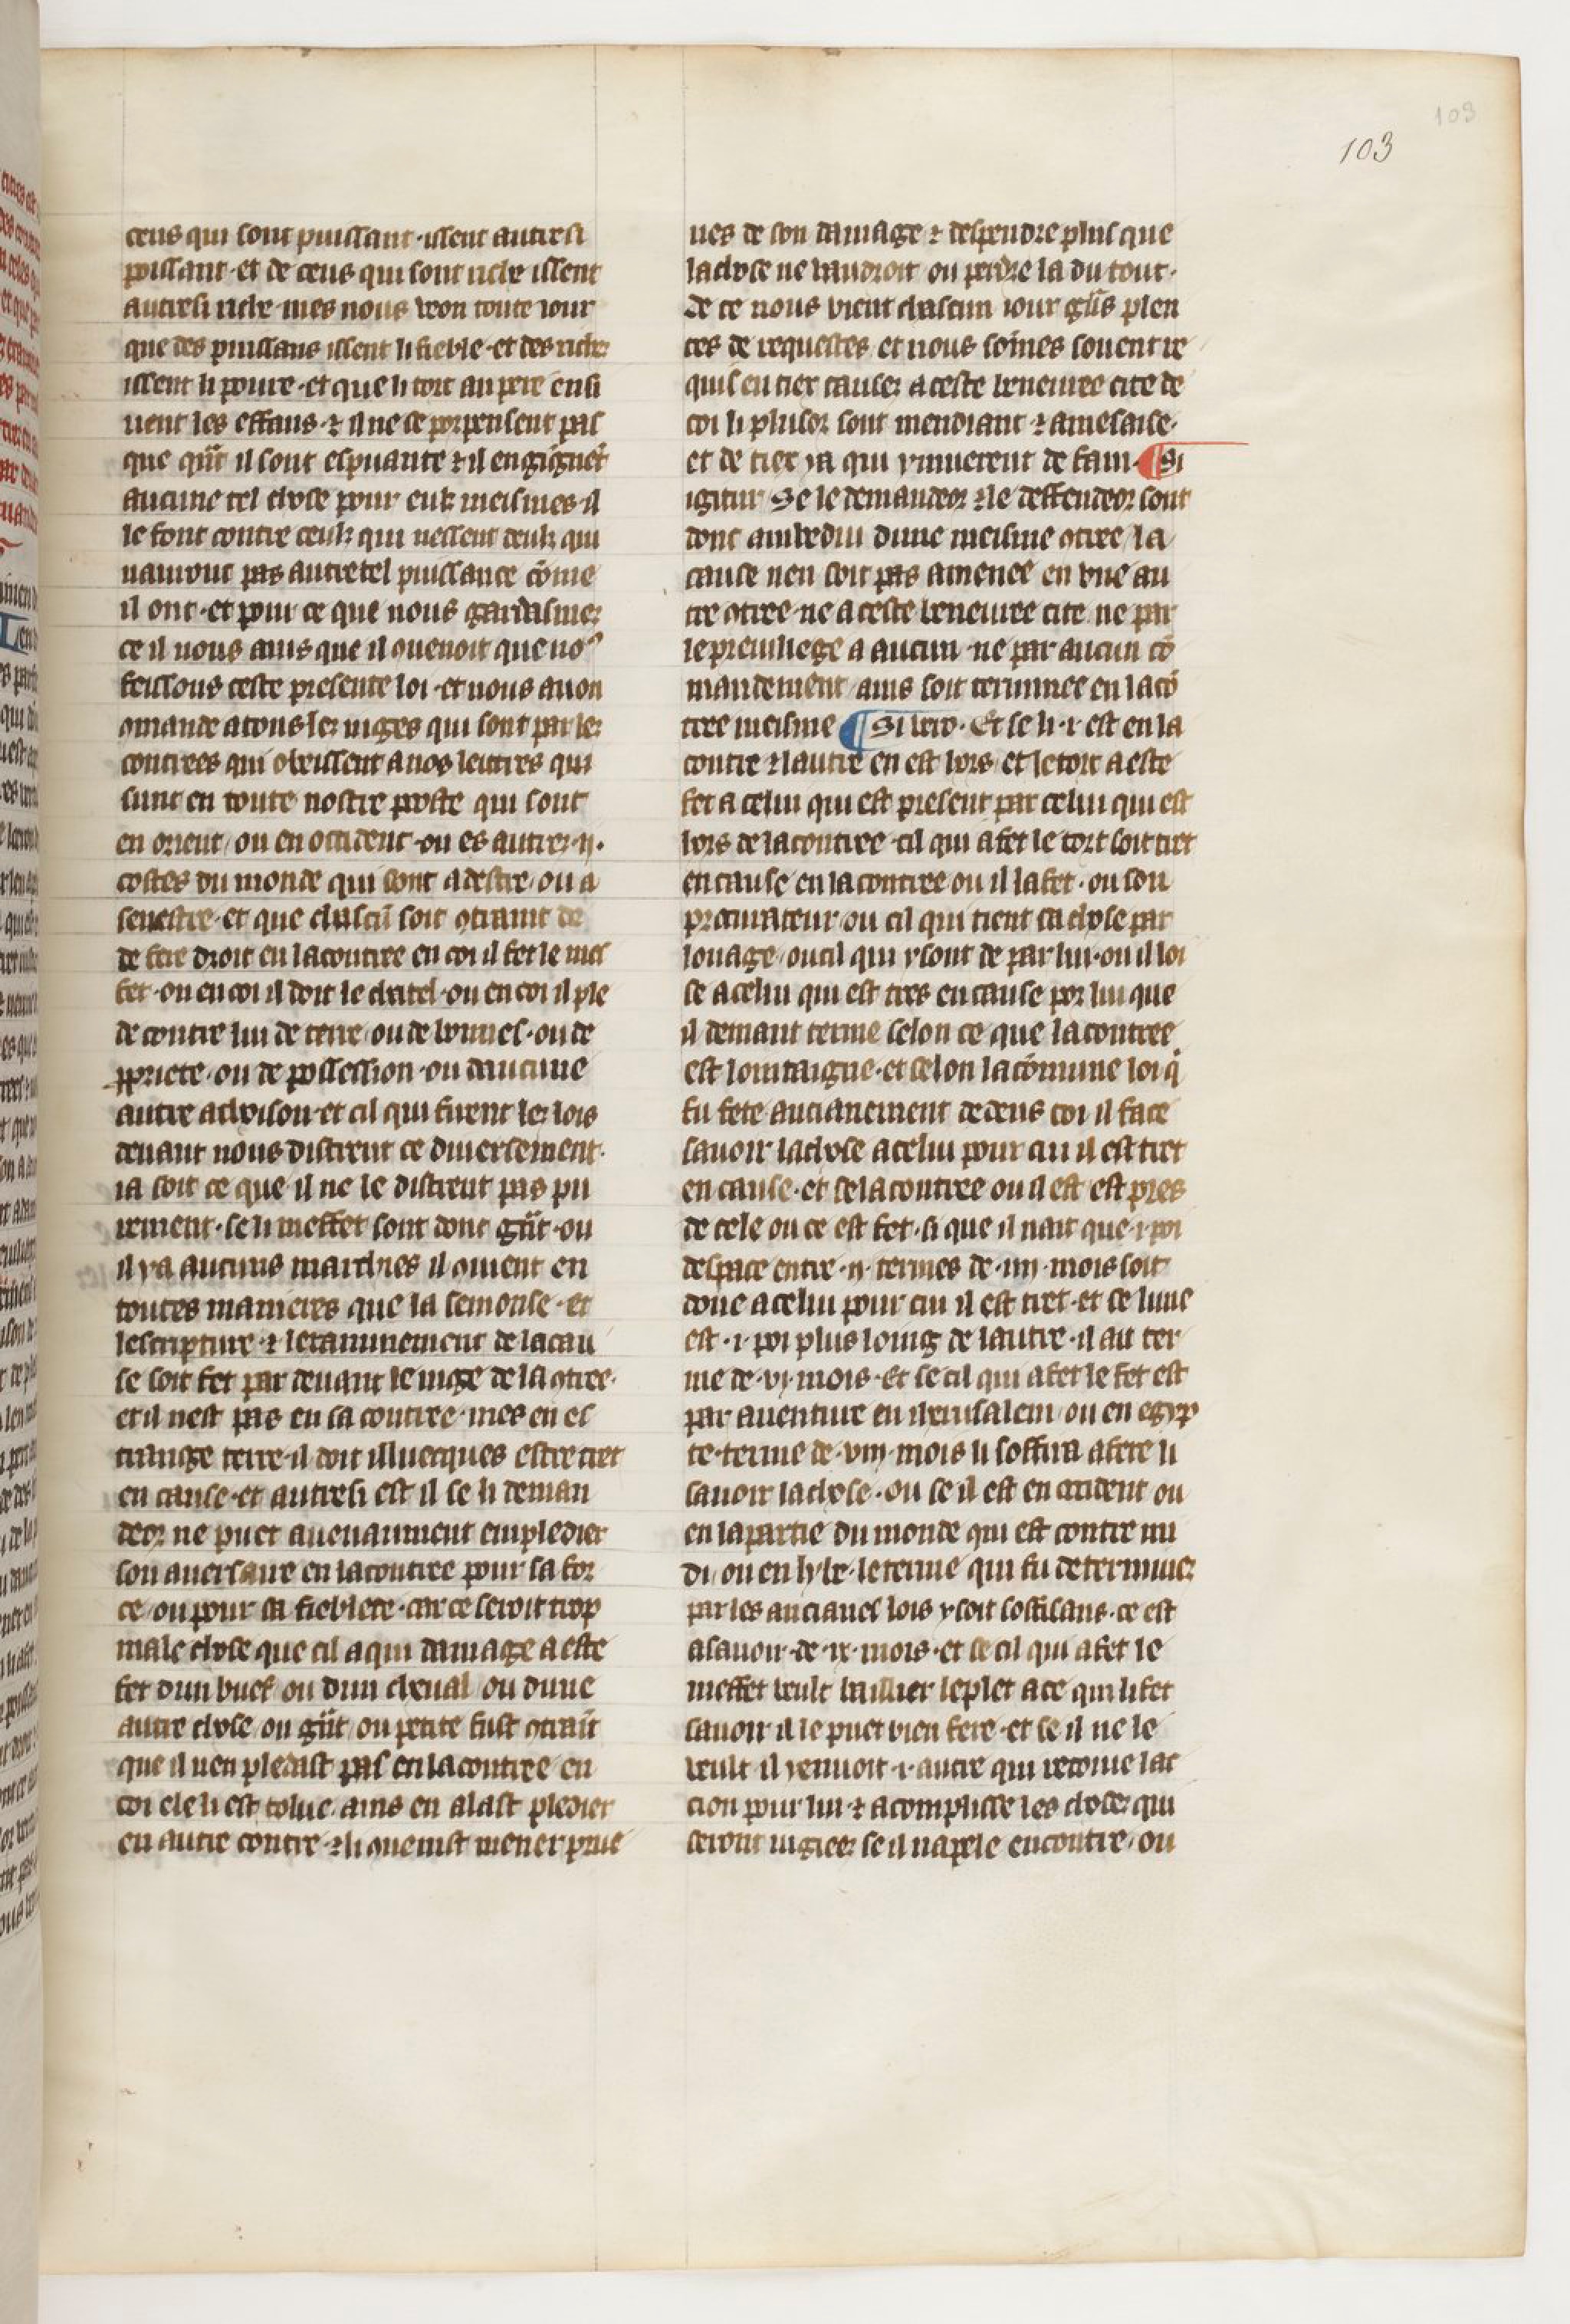 103
103
ceus qui sont puissant · issent autresi
poissant · et de ceus qui sont riche issent
autresi riche · mes nous veon toute iour
que des puissans issent li fieble · et des riches
issent li poure · et que li tort au pere ensi
uent les effans · ⁊ il ne se porpensent pas
que qñt il sont
aucune tel chose pour eulz meismes · il
le font contre ceulz qui nessent deulz qui
nauront pas autretel puissance cõme
il ont · et pour ce que nous gardasmes
ce il nous auis que il ꝯuenoit que noꝰ
feissons ceste presente loi · et nous auon
ꝯmande a tous les iuges qui sont par les
contrees qui obeissent a nos lettres qui
sunt en toute nostre poste qui sont
en orient / ou en occident · ou es autres · ii ·
costes du monde qui sont a destre / ou a
senestre · et que chascũ soit ꝯtraint de
de fere droit en la contree en coi il fet le mes
fet · ou en coi il doit le chatel · ou en coi il ple
de contre lui de terre / ou de bonnes · ou de
ꝓpriete · ou de possession · ou daucune
autre achoison · et cil qui firent les lois
deuant nous distrent ce diuersement ·
ia soit ce que il ne le distrent pas pu
rement · se li meffet sont dont gñt · ou
il y a aucuns marchies il ꝯuient en
toutes manieres que la semonse · et
lescripture ⁊ lexaminement de la cau
se soit fet par deuant le iuge de la ꝯtree ·
et il nest pas en sa contree · mes en es
trange terre · il doit illuecques estre tret
en cause · et autresi est il se li deman
deor ne puet auenaument empledier
son auersaire en la contree pour sa for
ce / ou pour sa fieblete · car ce seroit trop
male chose que cil a qui damage a este
fet dun buef / ou dun cheual / ou dune
autre chose / ou gñt / ou petite fust ꝯtraĩt
que il nen pledast pas en la contree en
coi ele li est tolue · ains en alast pledier
en autre contre · ⁊ li ꝯuenist mener prue
ues de son damage ⁊ despendre plus que
la chose ne vaudroit ou perdre la du tout ·
de ce nous vient chascun iour grñs plen
tes de requestes et nous sõmes souent re
quis en tier causes a ceste beneuree cite de
coi li plusor sont mendiant ⁊ a mesaise ·
et de tiex ya qui y muerent de fain · ¶ Si
igitur Se le demandeor ⁊ le deffendeor sont
dont ambedui dune meisme ꝯtree / la
cause nen soit pas amenee en vne au
tre ꝯtree · ne a ceste beneuree cite ne par
le preuiliege a aucun · ne par aucun cõ
mandement / ains soit terminee en la cõ
tree meisme ¶ Si vero · Et se li · i est en la
contre ⁊ lautre en est hors / et le tort a este
fet a celui qui est present par celui qui est
hors de la contree · cil qui a fet le tort soit tret
en cause en la contree ou il la fet · ou son
procurateur / ou cil qui tient sa chose par
louage / ou cil qui y sont de par lui · ou il loi
se a celui qui est tres en cause por lui que
il demant terme selon ce que la contree
est lointaigne · et selon la cõmune loi q̃
fu fete ancianement dedens coi il face
sauoir la chose a celui pour cui il est tret
en cause · et se la contree ou il est est pres
de cele ou ce est fet · si que il nait que · i · poi
despace entre · ii · termes de · iiii · mois soit
done a celui pour cui il est tret · et se lune
est · i · poi plus loing de lautre · il ait ter
me de · vi · mois · Et se cil qui a fet le fet est
par auenture en iherusalem / ou en egyp
te · terme de · viii · mois li soffira a fere li
sauoir la chose · ou se il est en occident ou
en la partie du monde qui est contre mi
di / ou en lybe · le terme qui fu determinez
par les ancianes lois y soit soffisans · ce est
a sauoir · de · ix · mois · et se cil qui a fet le
meffet veult baillier le plet a ce qui li fet
sauoir il le puet bien fere · et se il ne le
veult il y enuoit · i · autre qui recoiue lac
cion pour lui ⁊ acomplisse les choses qui
seront iugiees se il napele encontre / ou